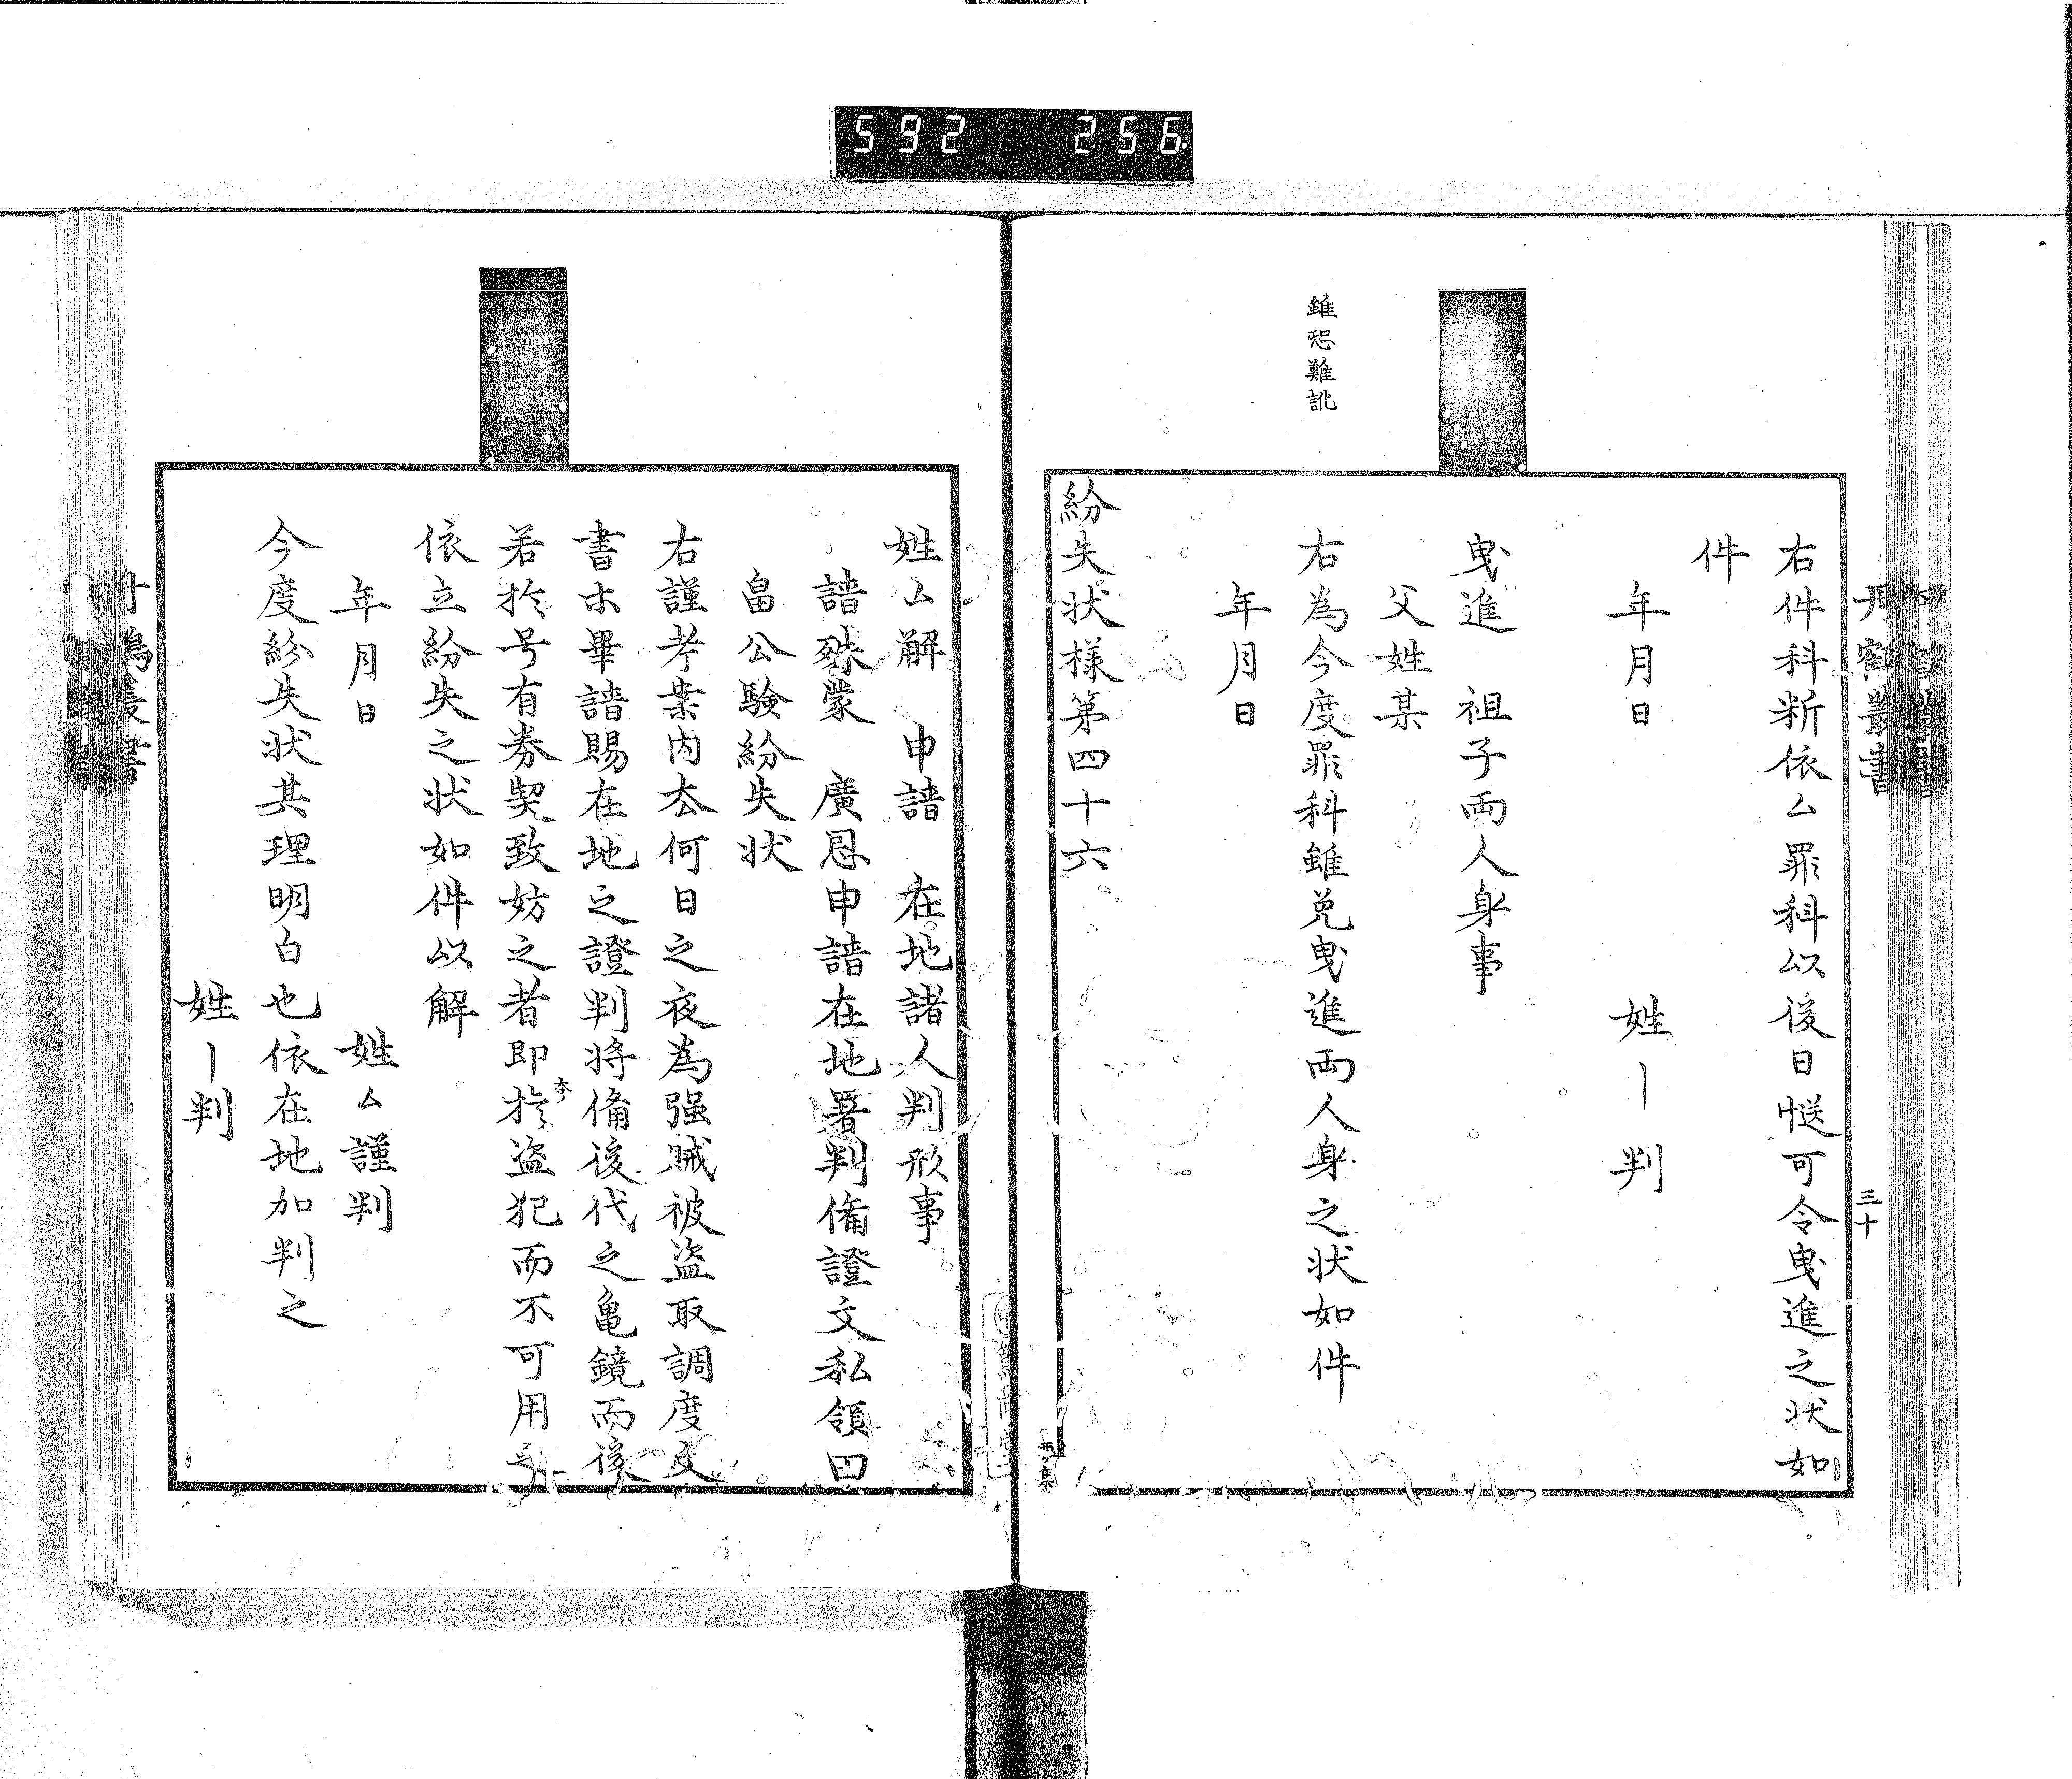 592 256
丹鶴叢書
三十
右件科断依ム罪科以後日慥可令曳進之状如
件
年月日
姓〡判
曳進 祖子両人身事
父姓某
雖恐難訛
右為今度罪科雖免曳進両人身之状如件
年月日
紛失状様第四十六
姓ム解 申請 在地諸人判形事
請殊蒙 廣恩申請在地署判備證文私領田
畠公験紛失状
右謹考案内去何日之夜為强賊被盗取調度文
書木畢請賜在地之證判将備後代之亀鏡而後
若於号有券契致妨之者即於盗犯而不可用
本
依立紛失之状如件以解
年月日
姓ム謹判
今度紛失状其理明白也依在地加判之
姓〡判